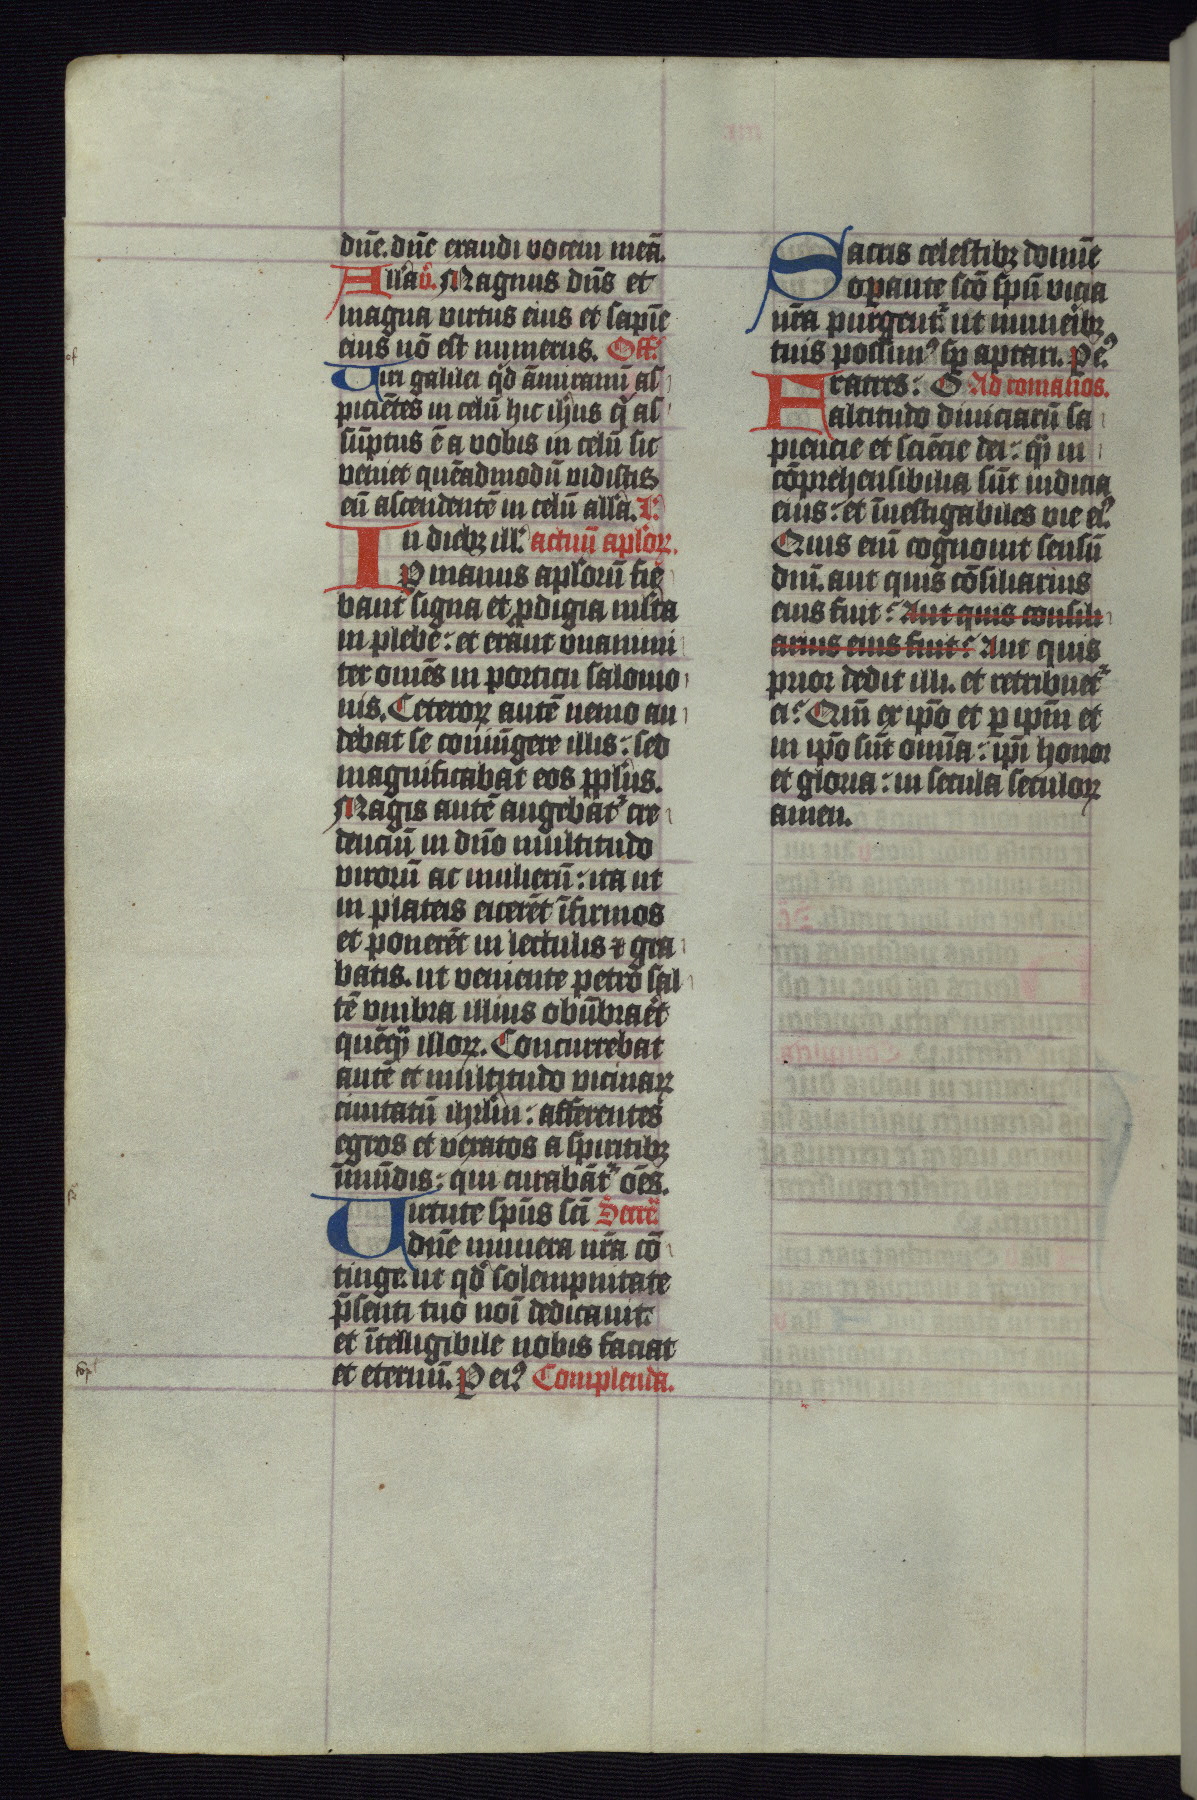 dūe. dūe exaudi vocem meā.
Alla v̄. Magnus dūs et
magna virtus eius et sapīe
eius nō est numerus. Off.
Viri galilei qd āmiramī as
picientes in celū hic ihus q as
sūptus ē a vobis in celū sic
veniet quēadmodū vidistis
eū ascendentē in celū alla. L.
In dieb; ill. actuū aplor̄.
P manus aplorū fie
bant signa et pdigia multa
in plebe : et erant vnanimi
ter omēs in porticu salomo
nis. Ceteror̄ autē nemo au
debat se coniūgere illis : sed
magnificabat eos ppl's.
Magis autē augebat' cre
denciū in dn̄o multitudo
virorū ac mulierū : ita ut
in plateis eicerēt īfirmos
et ponerēt in lectulis ⁊ gra
batis. ut veniente petro sal
tē vmbra illius obūbraret
quēq; illor̄. Concurrebat
autē et multitudo vicinar̄
ciuitatū ihrlm̄ : afferentes
egros et vexatos a spiritib;
īmūdis : qui curabāt' oēs.
Virtute spūs scī Secre.
dūe munera nr̄a cō
tinge. ut qd solempnitate
p̄senti tuo noī dedicauit.
et ītelligibile nobis faciat
et eternū. P ei' Complenda.
Sacris celestib; domīe
opante scō spū vicia
nr̄a purgent' : ut munerib;
tuis possim' sp aptari. P e'
Fratres : O Ad romanos.
altitudo diuiciarū sa
piencie et sciēcie dei : q̄ in
cōprehensibilia sūt iudicia
eius : et īuestigabiles vie ei'
Quis enī cognouit sensū
dnī. aut quis cōsiliarius
eius fuit : Aut quis consili
arius eius fuit : Aut quis
prior dedit illi. et retribuet'
ei : Qm̄ ex ipō et p ipm̄ et
in ipō sūt omīa : ipī honor
et gloria : in secula seculor̄
amen.